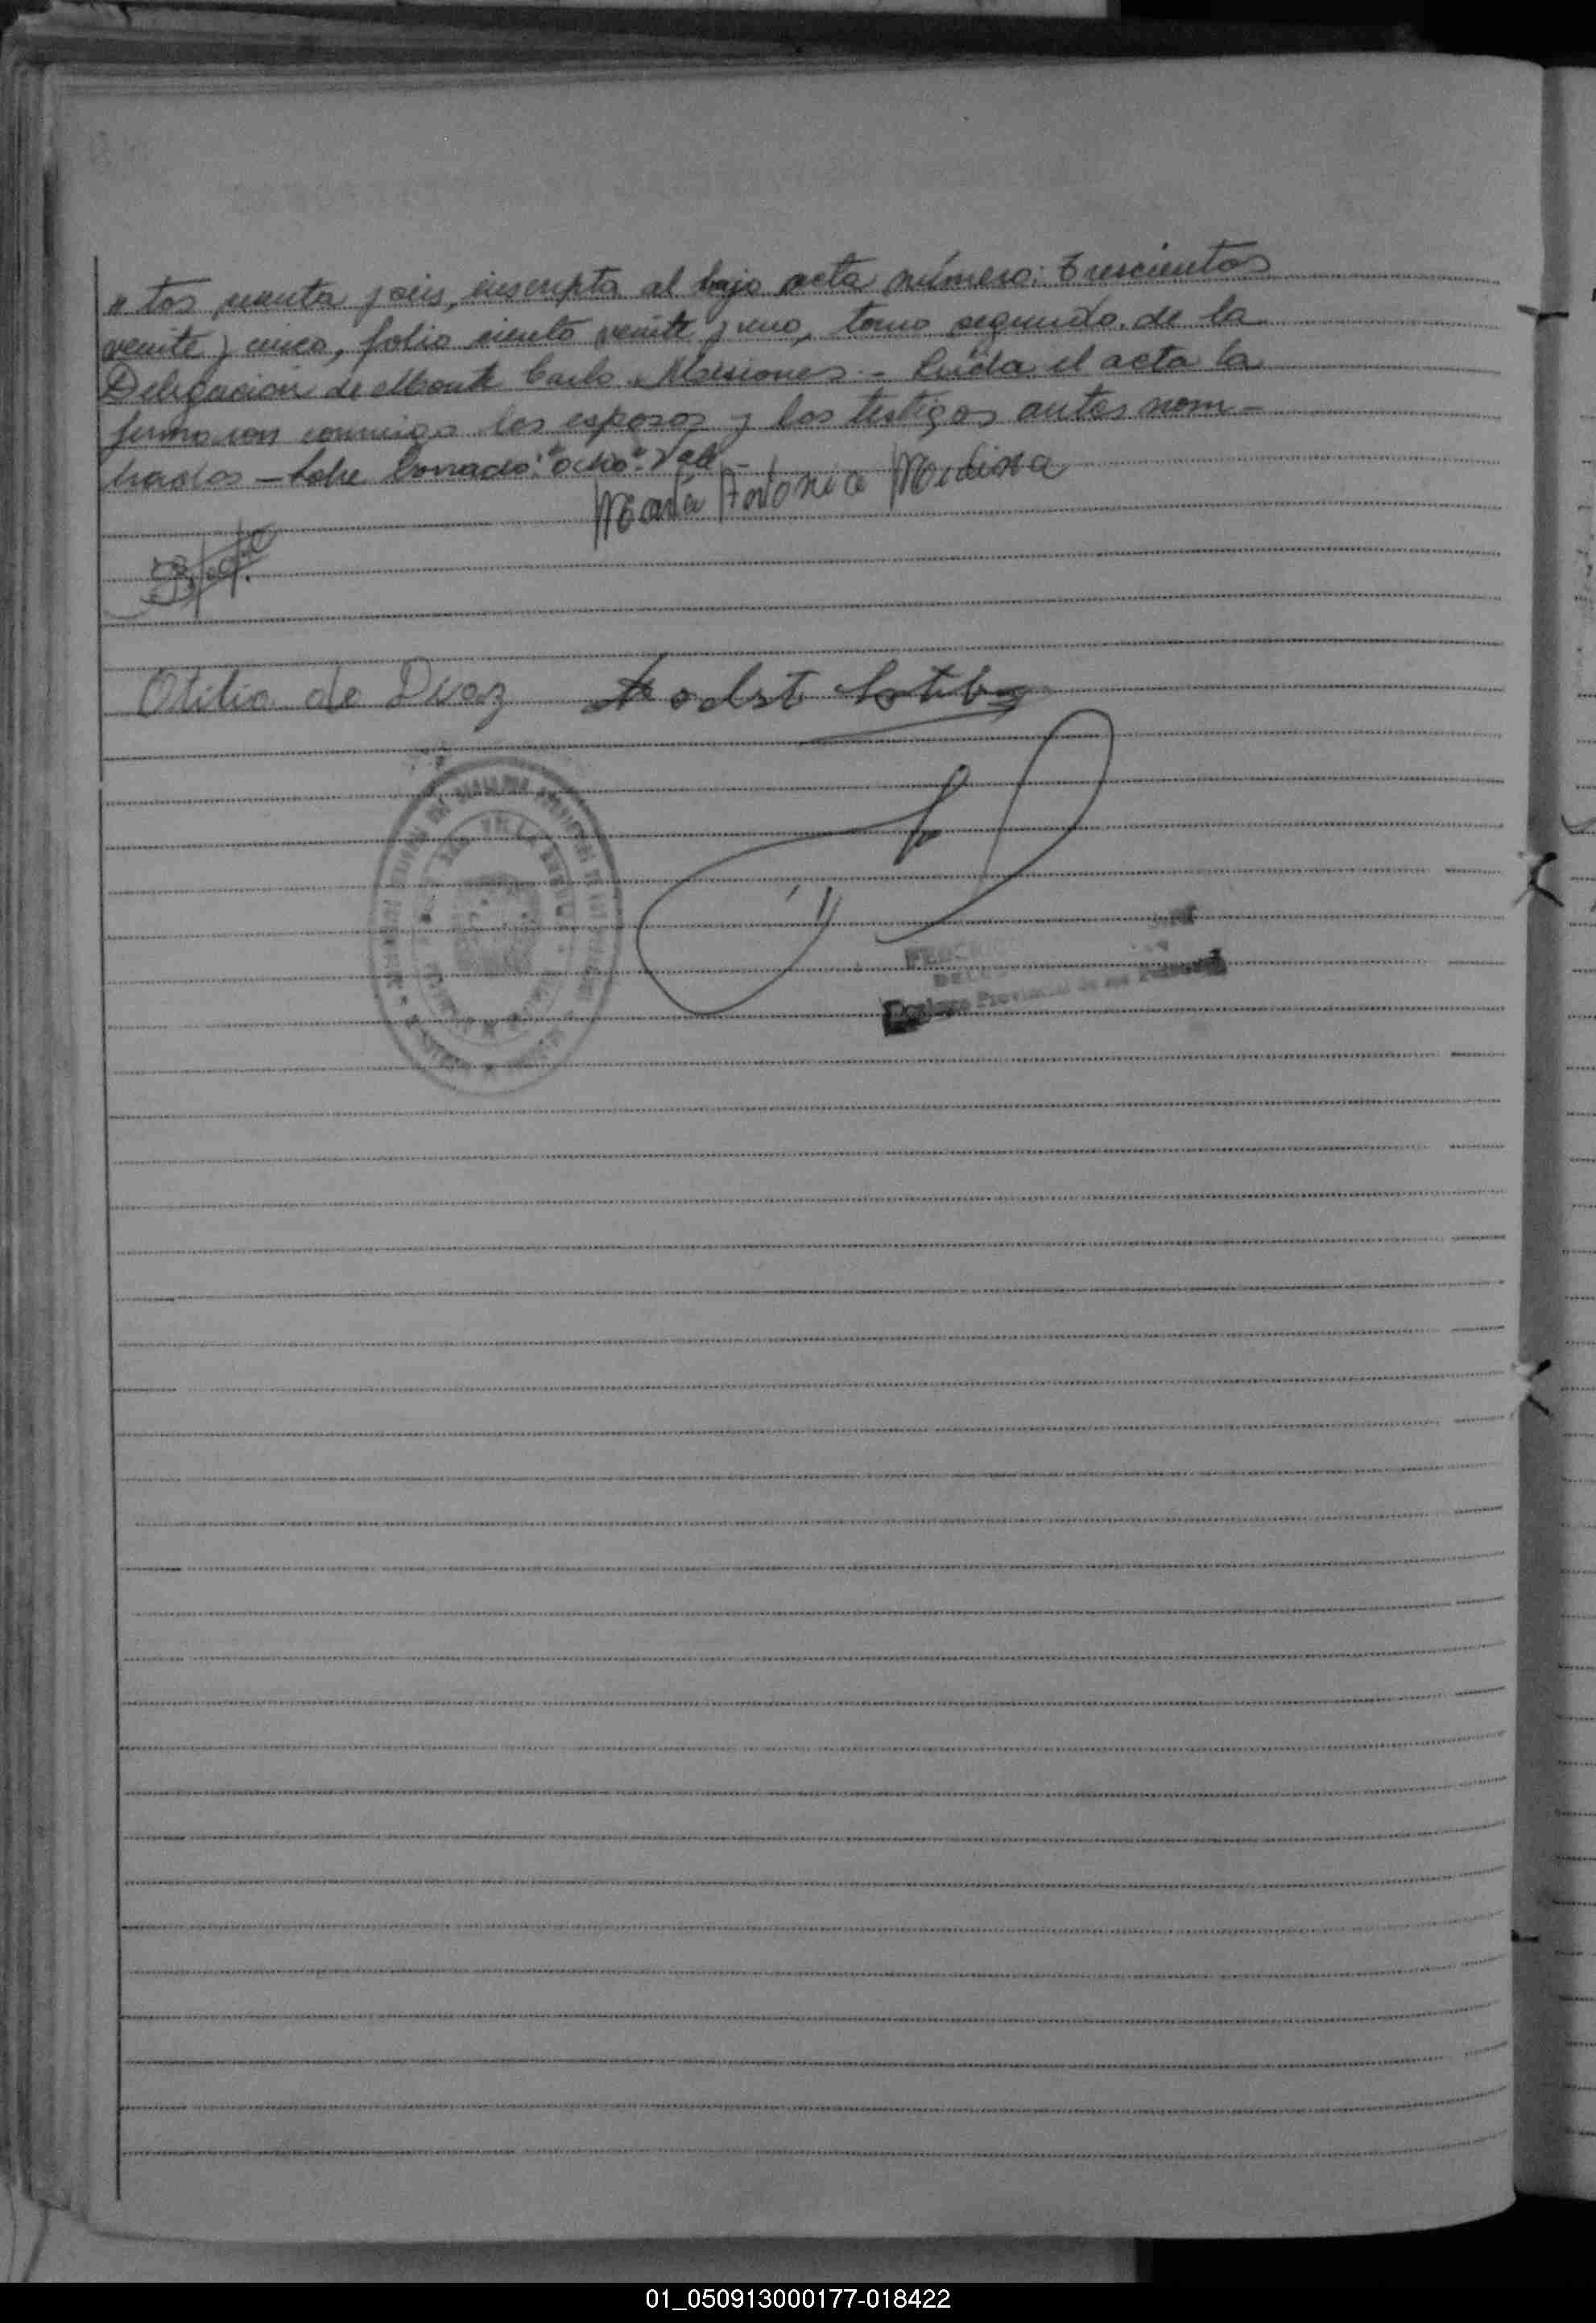 "tos, senta y seis, inscripta al bajo acta número: trescientos
veinte y cinco, folio ciento veinte y uno, tomo segundo, de la
Delegación de Monte Carlo, Misiones.- Leída el acta la
firman conmigo los esposos y los testigos antes nom-
brados - Sobre borrado: "ocho". Vale -
María Antonia Medina
Otilia de Diaz
FEDERICO
DEL
Registro Provincial de las Personas
01_050913000177-018422